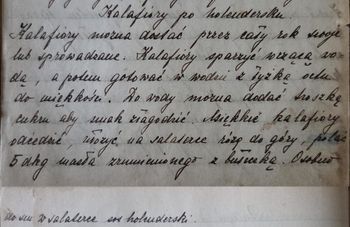 Kalafiory po holendersku
Kalafiory można dostać przez cały rok swoje
lub sprowadzane. Kalafiory sparzyć wrzącą wo-
dą, a potem gotować w wodzie z łyżką octu
do miękkości. Do wody można dodać troszkę
cukru aby smak złagodzić. Miękkie kalafiory
odcedzić, ułożyć na salaterce różą do góry, polać
5 dkg masła zrumienionego z bułeczką. Osobno
do su w salaterce sos holenderski.